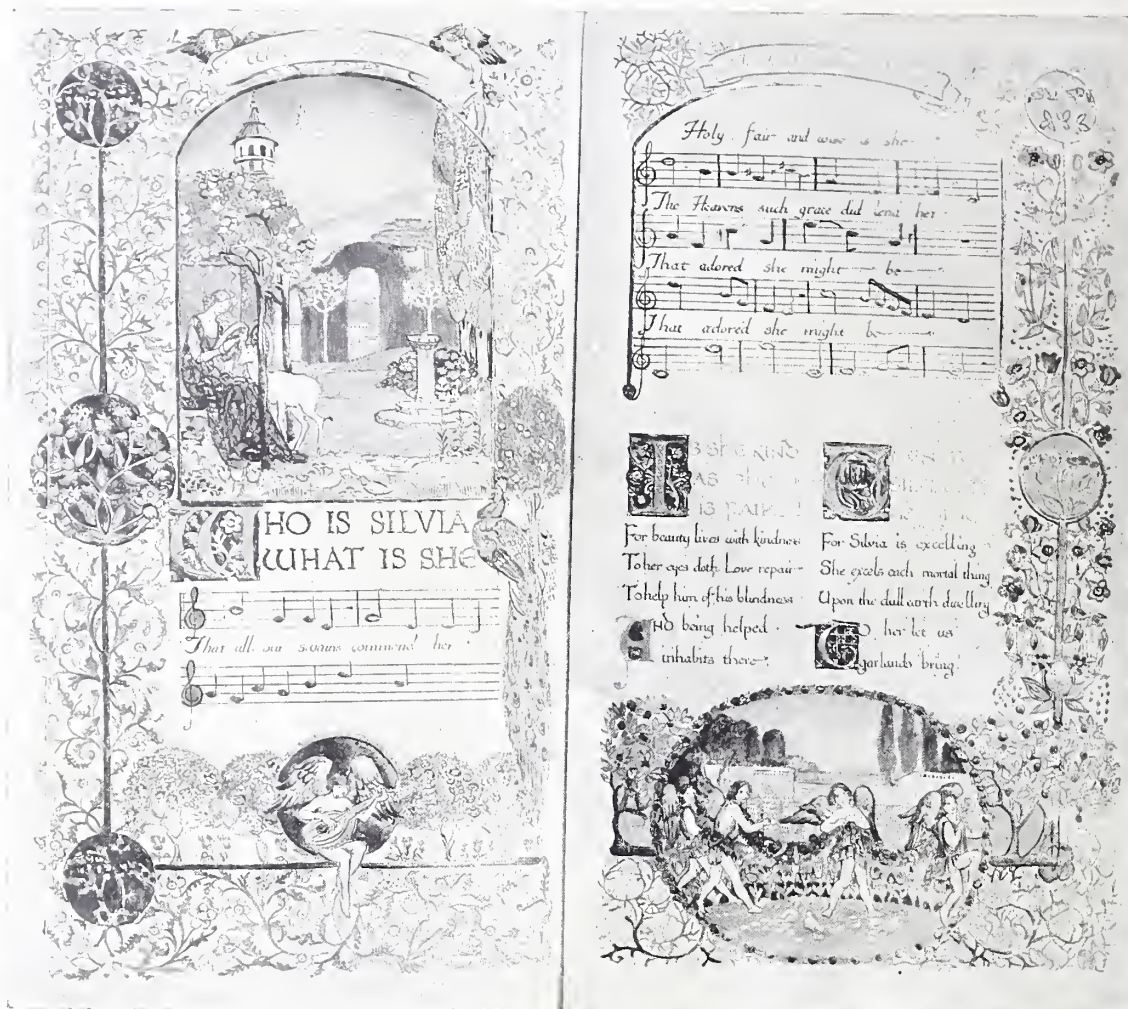 WHO IS SILVIA
WHAT IS SHE
That all our swains commend her
Holy fair and wise is she
The Heavens such grace did lend her
That adored she might be
That adored she might be
IS SHE KIND
AS SHE
IS FAIR
For beauty lives with kindness
To her eyes doth Love repair
To help him of his blindness
AND being helped
inhabits there
For Silvia is excelling
She excels each mortal thing
Upon the dull earth dwelling
TO her let us
garlands bring